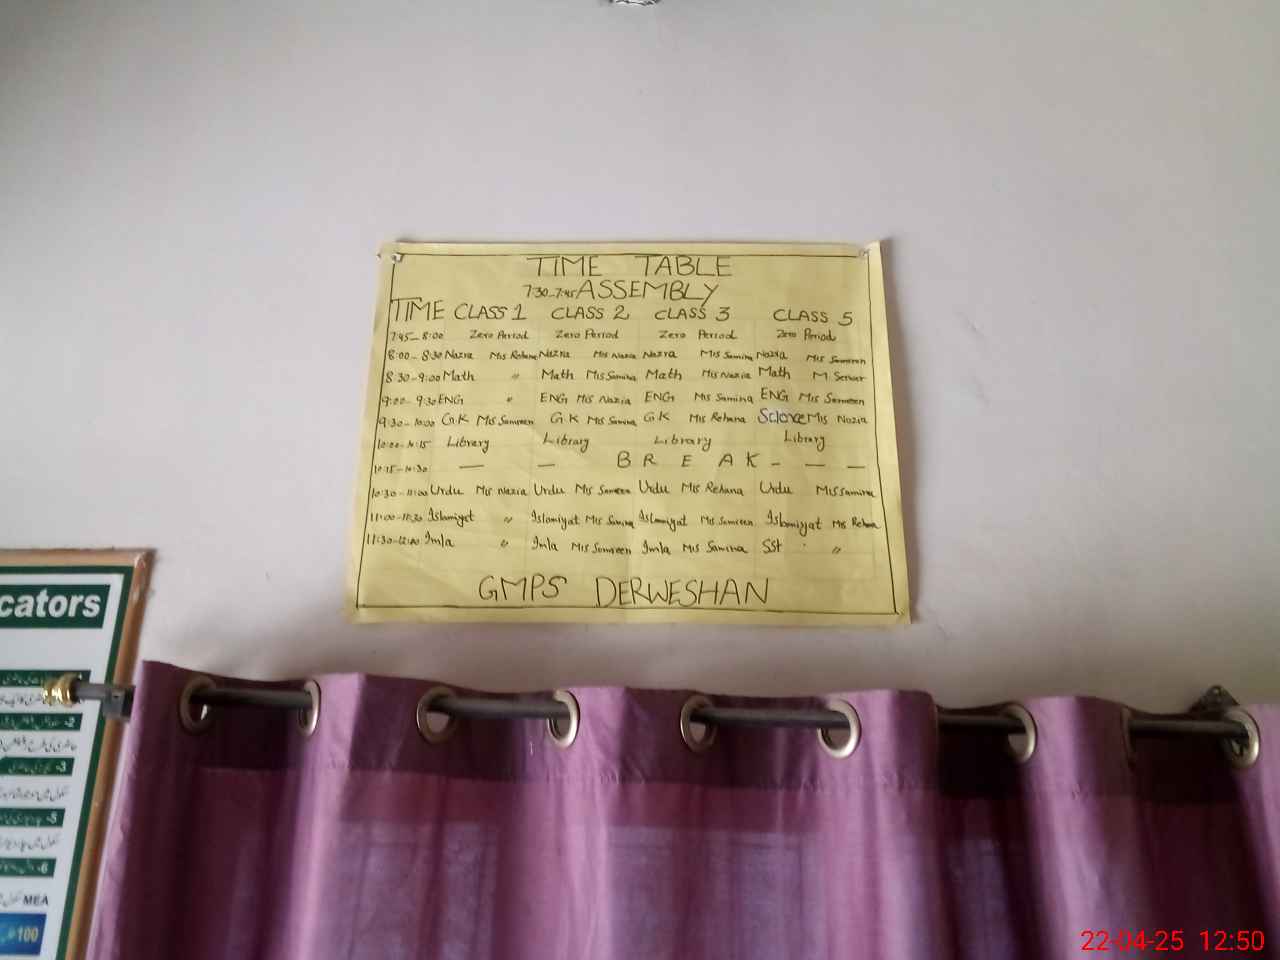 TIME TABLE
7:30-7:45 ASSEMBLY
TIME CLASS 1 CLASS 2 CLASS 3 CLASS 5
7:45-8:00 Zero Period Zero Period Zero Period Zero Period
8:00-8:30 Nazra Mis Rehana Nazra Mis Nazia Nazra Mis Samina Nazra Mis Samreen
8:30-9:00 Math " Math Mis Samina Math Mis Nazia Math M. Serwar
9:00-9:30 ENG " ENG Mis Nazia ENG Mis Samina ENG Mis Sameen
9:30-10:00 G.K Mis Samreen G K Mis Samina G K Mis Rehana Science Mis Nazia
10:00-10:15 Library Library Library Library
10:15-10:30 — — B R E A K - — —
10:30-11:00 Urdu Mis Nazia Urdu Mis Sameen Urdu Mis Rehana Urdu Mis Samina
11:00-11:30 Islamiyat " Islamiyat Mis Samina Islamiyat Mis Samreen Islamiyat Mis Rehana
11:30-12:00 Imla " Imla Mis Samreen Imla Mis Samina SSt "
GMPS DERWESHAN
cators
-2
-3
-5
-6
MEA
100
22-04-25 12:50